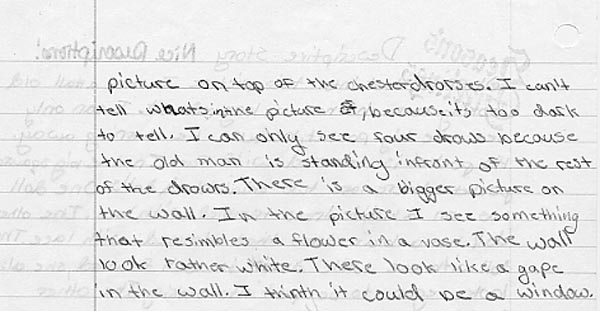 picture on top of the chesterdrorses. I can't
tell whats in the picture, because its too dark
to tell. I can only see four draws because
the old man is standing infront of the rest
of the drowrs. There is a bigger picture on
the wall. In the picture I see something
that resimbles a flower in a vase. The wall
look rather white. There look like a gape
in the wall. I thinth it could be a window.